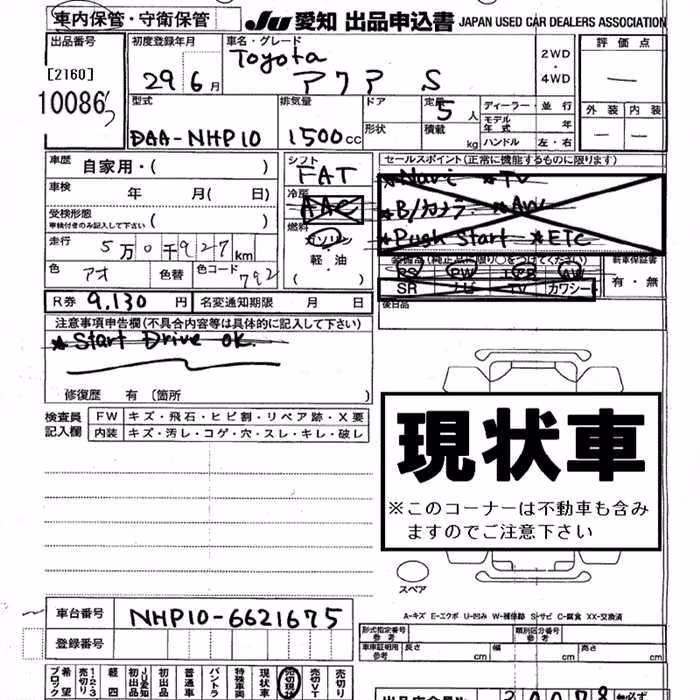 車内保管・守衛保管
JU 愛知 出品申込書 JAPAN USED CAR DEALERS ASSOCIATION
出品番号
[2160]
10086
初度登録年月
29 6月
車名・グレード
Toyota
アクア S
2WD
・
4WD
評価点
―
外装 内装
― ―
型式
DAA-NHP10
排気量
1500cc
ドア
形状
定員
5人
積載
kg
ディーラー・並行
モデル年式 年
ハンドル 左・右
車歴
自家用・( )
車検
年 月( 日)
受検形態
車検付きのみ記入して下さい
( )
走行
5万0千927km
色
アオ
色替
色コード
792
シフト
FAT
冷房
AAC
燃料
ガソリン
軽・油
( )
セールスポイント(正常に機能するものに限ります)
*Navi *TV
*B/カメラ *AW
*Push Start *ETC
装備品(純正品に限り○をつけてください)
PS PW AW
SR ナビ TV カワシート
新車保証書
有・無
後日品
R券 9,130 円
名変通知期限 月 日
注意事項申告欄(不具合内容等は具体的に記入して下さい)
* Start Drive OK.
修復歴 有 〔箇所
検査員記入欄
FW キズ・飛石・ヒビ割・リペア跡・X要
内装 キズ・汚し・コゲ・穴・スレ・キレ・破し
現状車
※このコーナーは不動車も含み
ますのでご注意下さい
スペア
A-キズ E-エクボ U-凹み W-補修跡 S-サビ C-腐食 XX-交換済
車台番号
NHP10-6621675
登録番号
形式指定番号
参考
類別区分番号
参考
車庫証明用
参考
長さ cm
幅 cm
高さ cm
希望ブロック
売切り1・2・3
軽四
JU愛知初出品
初出品
普通車
バントラ
特殊車両
売切現状
売切VT
売切り